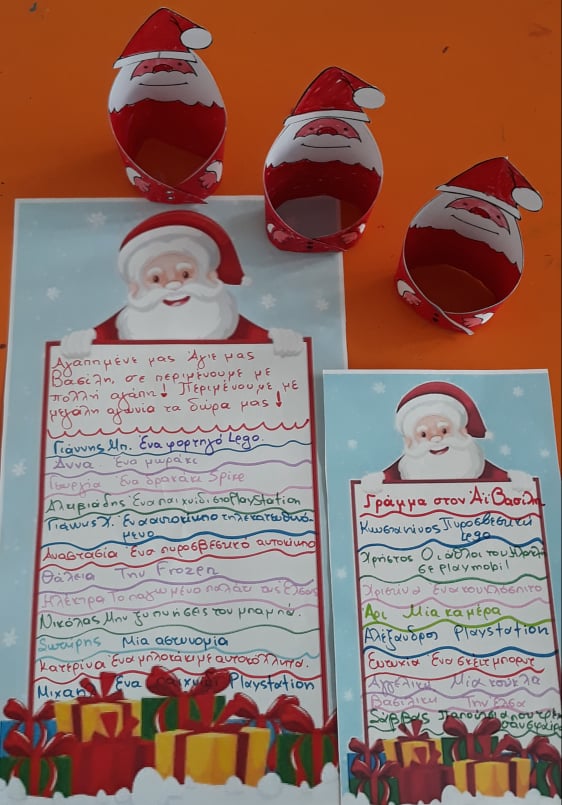 Αγαπημένε μας Άγιε μας
Βασίλη, σε περιμένουμε με
πολλή αγάπη! Περιμένουμε με
μεγάλη αγωνία τα δώρα μας!
Γιάννης Μη. Ένα φορτηγό Lego.
Άννα. Ένα μωράκι
Γεωργία Ένα δρακάκι Spike
Αλκιβιάδης Ένα παιχνίδι στο PlayStation
Γιάννης Χ. Ένα αυτοκίνητο τηλεκατευθυνό-
μενο
Αναστασία Ένα πυροσβεστικό αυτοκίνητο
Θάλεια Την Frozen
Ηλέκτρα Το παγωμένο παλάτι της Έλσας
Νικόλας Μην ξυπνήσεις τον μπαμπά.
Σωτήρης Μια αστυνομία
Κατερίνα Ένα μπλοκάκι με αυτοκόλλητα.
Μιχαήλ Ένα παιχνίδι Playstation
Γράμμα στον Άϊ Βασίλη
Κωσταντίνος Πυροσβεστική
Lego
Χρήστος Οι άθλοι του Ηρακλή
σε playmobil
Χριστίνα Ένα κουκλόσπιτο
Άρι Μία κάμερα
Αλέξανδρος Playstation
Ένα σκέιτμπορντ
Αγγελική Μία κούκλα
Βασιλική Την Έλσα
Σάββας Παπούτσια που τρέχ